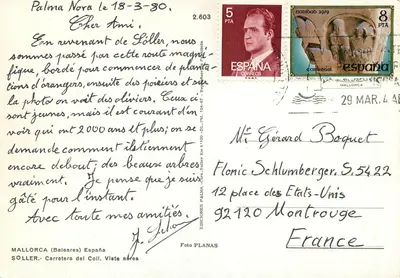 Palma Nova le 18-3-80.
Cher Ami.
En revenant de Soller, nous
sommes passé par cette route magni-
fique, bordé pour commencer de planta-
tions d'orangers, ensuite des poisiers et sur
la photo on voit des oliviers. Ceux ci
sont jeunes, mais il est courant d'en
voir qui ont 2000 ans et plus; on se
demande comment ils tiennent
encore debout; des beaux arbres
vraiment. Je pense que je suis
gâté pour l'instant.
Avec toute mes amitiés.
MALLORCA (Baleares) España
SOLLER.- Carretera del Coll. Vista aérea
2.603
Foto PLANAS
5
PTA
ESPAÑA
CORREOS
navidad 1979
8
PTA
correos
ESPAÑA
MALLORCA
29 MAR. 4
Mr. Gérard Boquet
Flonic Schlumberger S.5422
12 place des Etats-Unis
92120 Montrouge
France